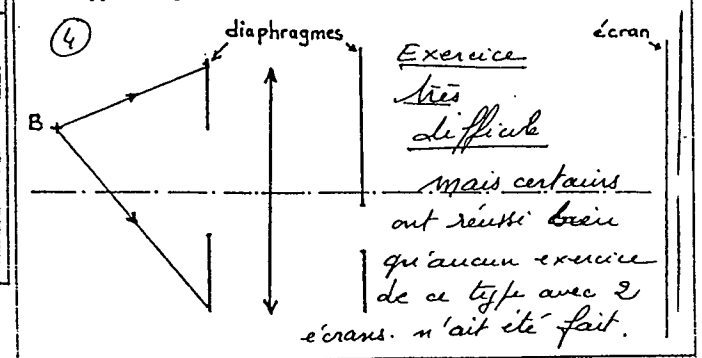 4
diaphragmes
écran
B
Exercice
très
difficile
mais certains
ont réussi bien
qu'aucun exercice
de ce type avec 2
écrans. n'ait été fait.